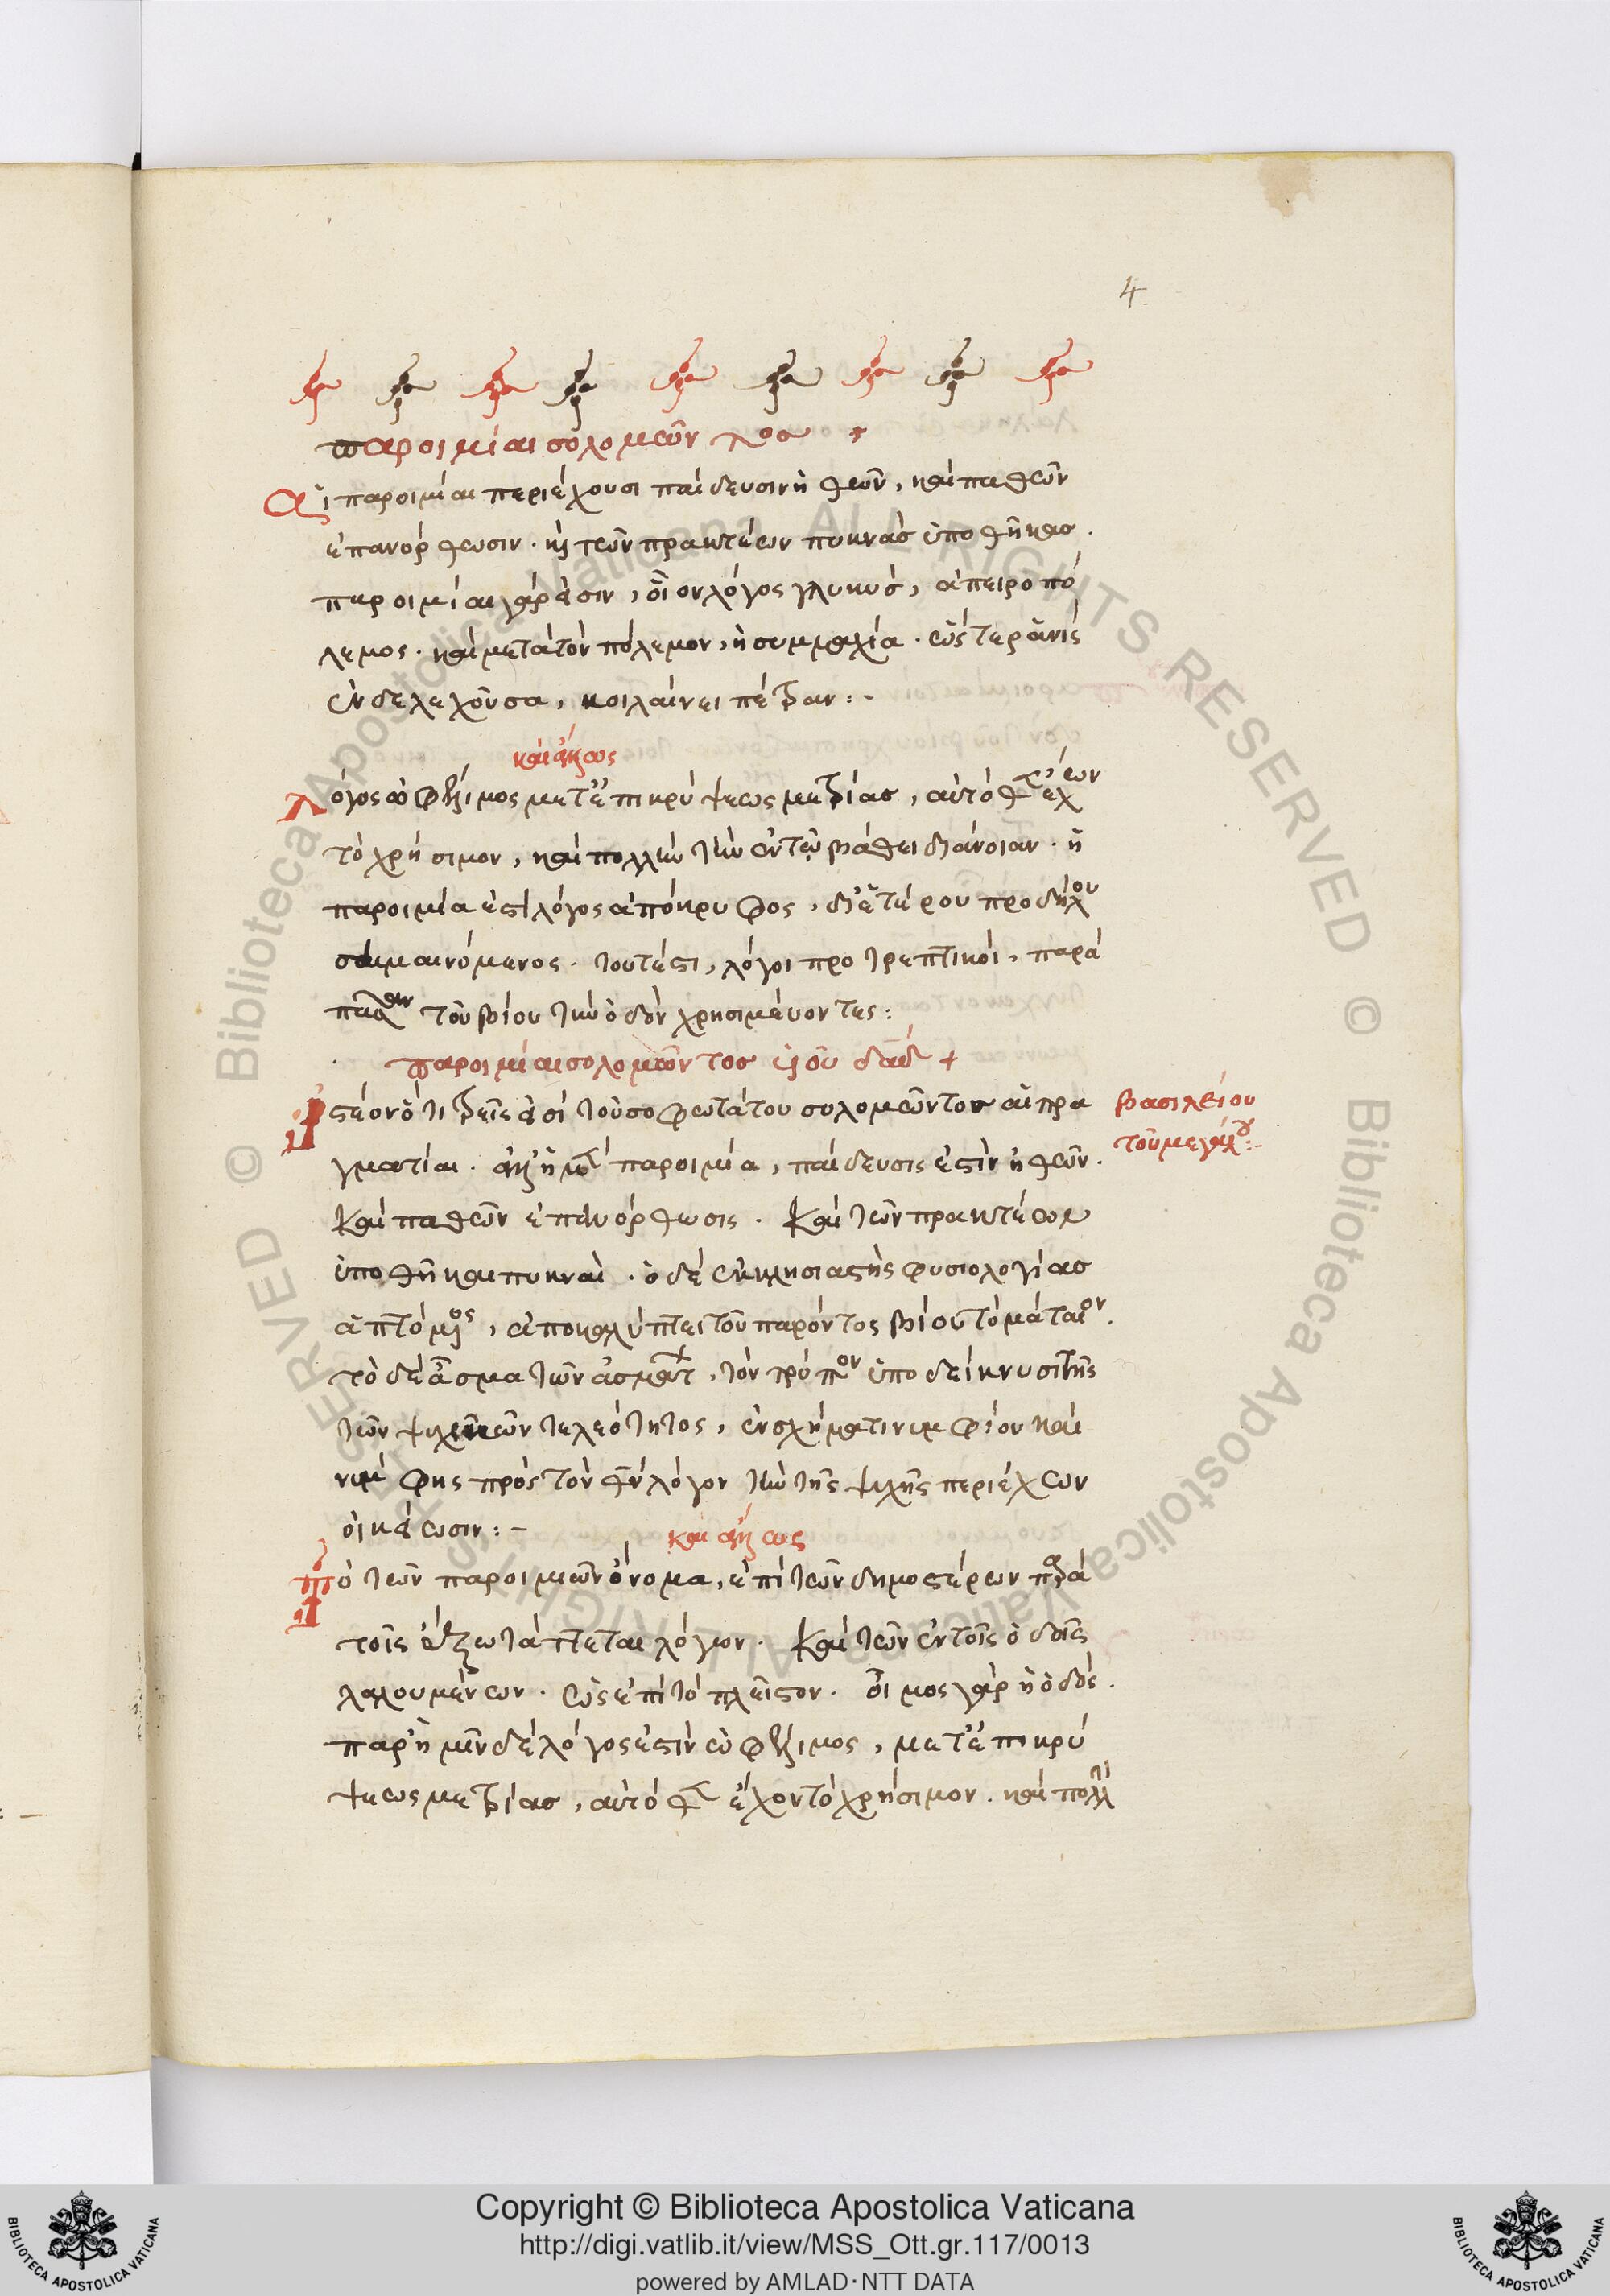 4
παροιμίαι σολομῶντος +
Αἱ παροιμίαι περιέχουσι παίδευσιν ἠθῶν, καὶ παθῶν
ἐπανόρθωσιν. καὶ τῶν πρακτέων πυκνὰς ὑποθήκας.
παροιμίαι γάρ εἰσιν, οἷον λόγος γλυκὺς, ἀπειροπό
λεμος. καὶ μετὰ τὸν πόλεμον, ἡ συμμαχία.
ἐνδελεχοῦσα, κοιλαίνει πέτραν:-
καὶ ἄλλως
Λόγος ὠφέλιμος μετ' ἐπικρύψεως μετρίας, αὐτόθεν τε ἔχων
τὸ χρήσιμον, καὶ πολλὴν τὴν ἐν τῷ βάθει διάνοιαν. ἢ
παροιμία ἐστὶ λόγος ἀπόκρυφος, δι' ἑτέρου προδήλου
σημαινόμενος. τουτέστι, λόγοι προτρεπτικοὶ, παρὰ
πᾶσαν τοῦ βίου τὴν ὁδὸν χρησιμεύοντες:
παροιμίαι σολομῶντος υἱοῦ δαδ +
Ἰστέον ὅτι τρεῖς εἰσὶ τοῦ σοφωτάτου σολομῶντος αἱ πρα
βασιλείου
τοῦ μεγάλου:-
γματίαι. ἀλλ' ἡ μὲν παροιμία, παίδευσις ἐστὶν ἠθῶν.
καὶ παθῶν ἐπανόρθωσις. καὶ τῶν πρακτέων
ὑποθῆκαι πυκναὶ. ὁ δὲ ἐκκλησιαστὴς φυσιολογίας
ἁπτόμενος, ἀποκαλύπτει τοῦ παρόντος βίου τὸ μάταιον.
τὸ δὲ ἆσμα τῶν ἀσμάτων, τὸν τρόπον ὑποδείκνυσι τῆς
τῶν ψυχῶν τελεότητος, ἐν σχήματι νυμφίου καὶ
νύμφης πρὸς τὸν θεὸν λόγον τὴν τῆς ψυχῆς περιέχων
οἰκείωσιν:-
καὶ ἄλλως
Τὸ τῶν παροιμιῶν ὄνομα, ἐπὶ τῶν δημοτέρων παρὰ
τοῖς ἔξω τάττεται λόγων. καὶ τῶν ἐν τοῖς ὁδοῖς
λαλουμένων. ὡς ἐπὶ τὸ πλεῖστον. οἶμος γὰρ ἡ ὁδός.
παρ' ἡμῖν δὲ λόγος ἐστὶν ὠφέλιμος, μετ' ἐπικρύ
ψεως μετρίας, αὐτόθεν ἔχον τὸ χρήσιμον. καὶ πολλὴν
BIBLIOTECA APOSTOLICA VATICANA
Copyright © Biblioteca Apostolica Vaticana
http://digi.vatlib.it/view/MSS_Ott.gr.117/0013
powered by AMLAD·NTT DATA
BIBLIOTECA APOSTOLICA VATICANA